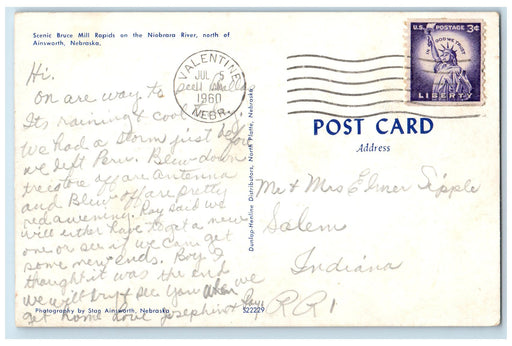 Scenic Bruce Mill Rapids on the Niobrara River, north of
Ainsworth, Nebraska.
VALENTINE
JUL 5
1960
NEBR.
U.S. POSTAGE 3¢
IN GOD WE TRUST
LIBERTY
Hi.
On are way to see
Its raining & cool
We had a storm just before
we left Peru. Blew down
tree tore off are antenna
and Blew off are pretty
red awening. Ray said we
will either have to get a new
one or see if we can get
some new ends. Boy I
thought it was the end
we will try & see you when we
get home love Josephine & Ray
POST CARD
Address
Mr & Mrs Elmer Sipple
Salem
Indiana
RR 1
Dunlap-Henline Distributors, North Platte, Nebraska
Photography by Stap Ainsworth, Nebraska
S22229